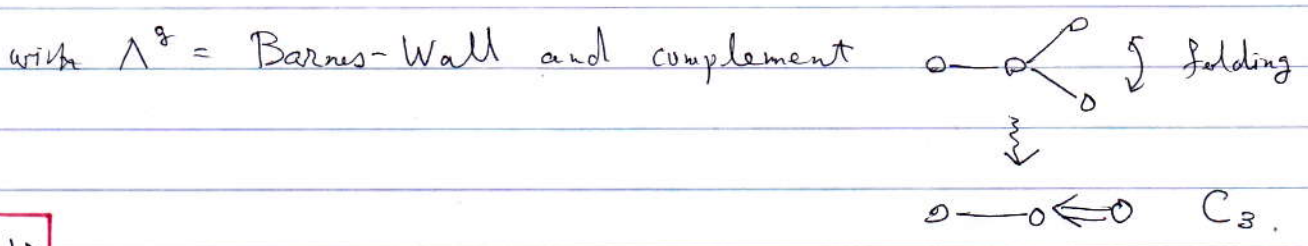 with Λ^g = Barnes-Wall and complement folding
C₃.